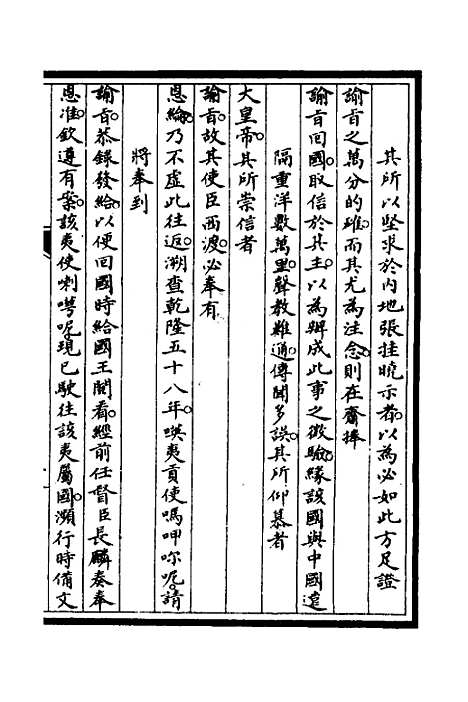 其所以堅求於內地張挂曉示者以為必如此方足證
諭旨之萬分的確而其尤為注念則在齎捧
諭旨回國取信於其主以為辦成此事之徵驗緣該國與中國遠
隔重洋數萬里聲教難通傳聞多誤其所仰慕者
大皇帝其所崇信者
諭旨故其使臣西渡必奉有
恩綸乃不虛此往返溯查乾隆五十八年暎夷貢使嗎呷呢請
將奉到
諭旨恭錄發給以便回國時給國王閱看經前任督臣長麟奏奉
恩准欽遵有案該夷使喇嘚呢現已駛往該夷屬國瀕行時備文